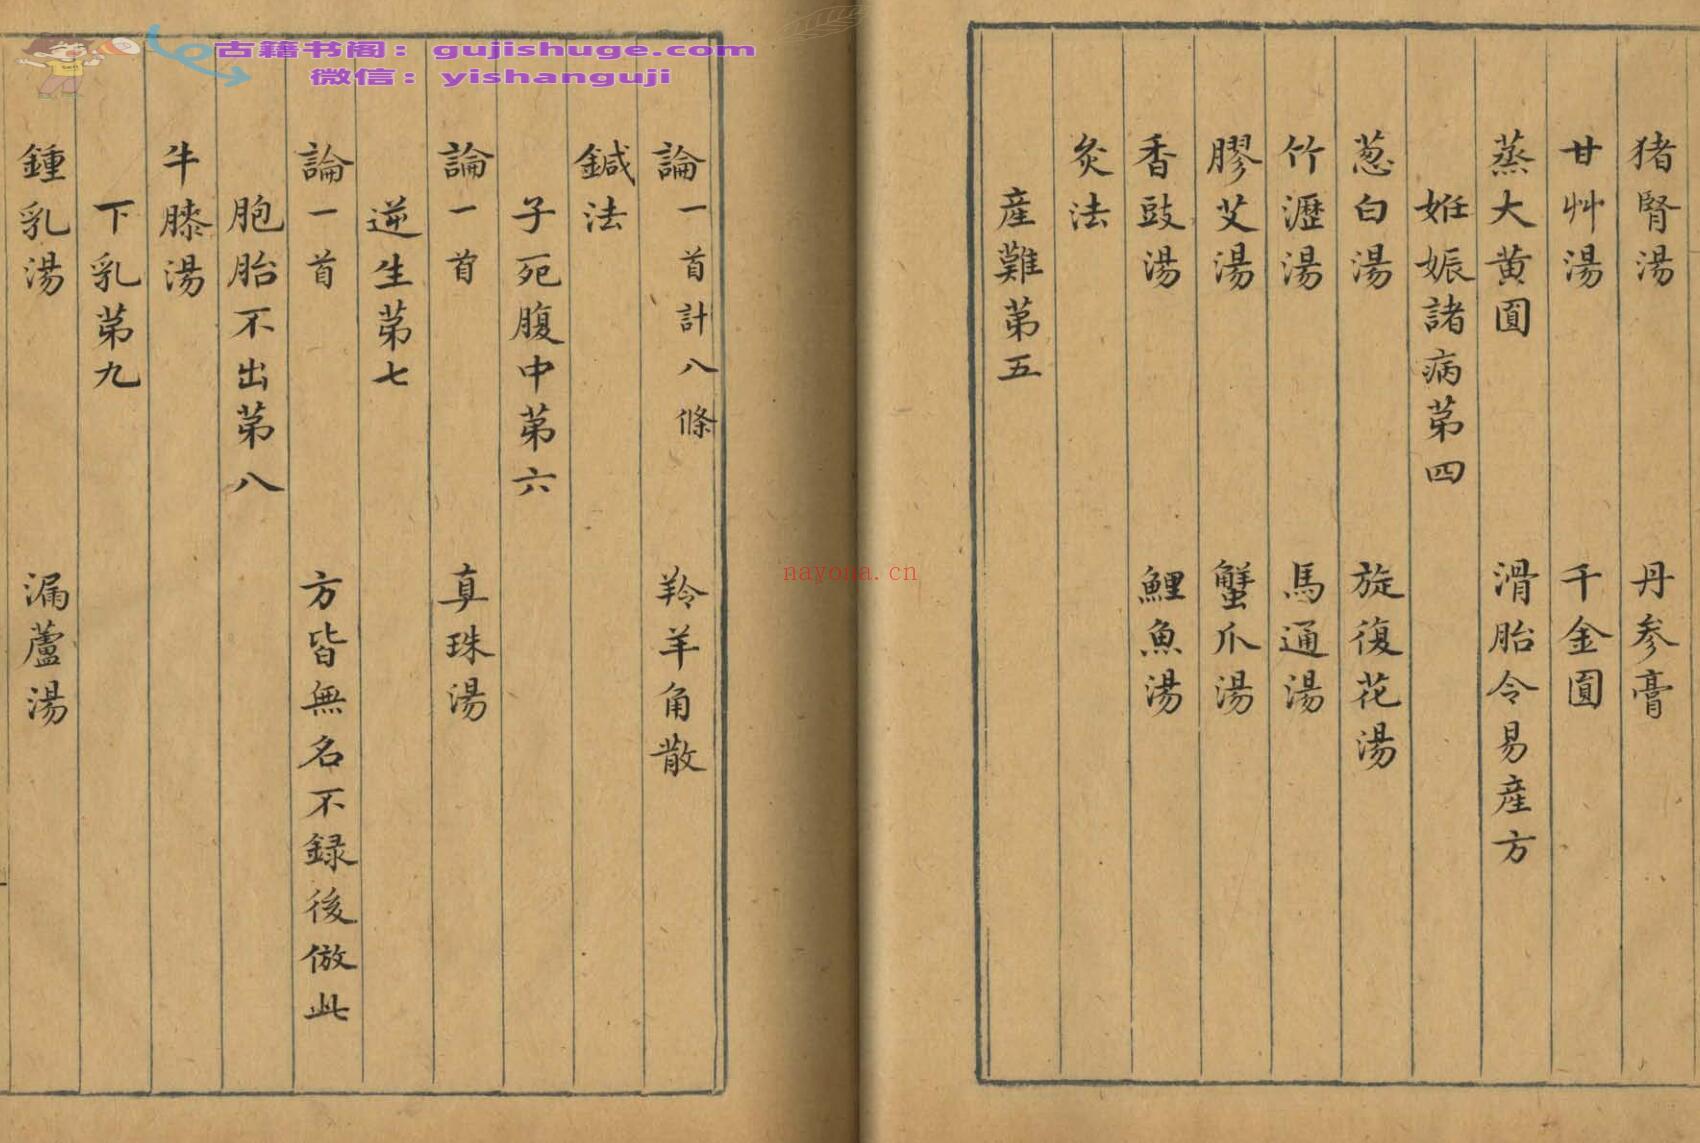 古籍书阁：gujishuge.com
微信：yishanguji
猪腎湯　丹参膏
甘艸湯　千金圓
蒸大黄圓　滑胎令易産方
姙娠諸病苐四
葱白湯　旋復花湯
竹瀝湯　馬通湯
膠艾湯　蟹爪湯
香豉湯　鯉魚湯
灸法
産難苐五
論一首計八條　羚羊角散
鍼法
子死腹中苐六
論一首　真珠湯
逆生苐七
論一首　方皆無名不録後倣此
胞胎不出苐八
牛膝湯
下乳苐九
鍾乳湯　漏蘆湯
nayona.cn